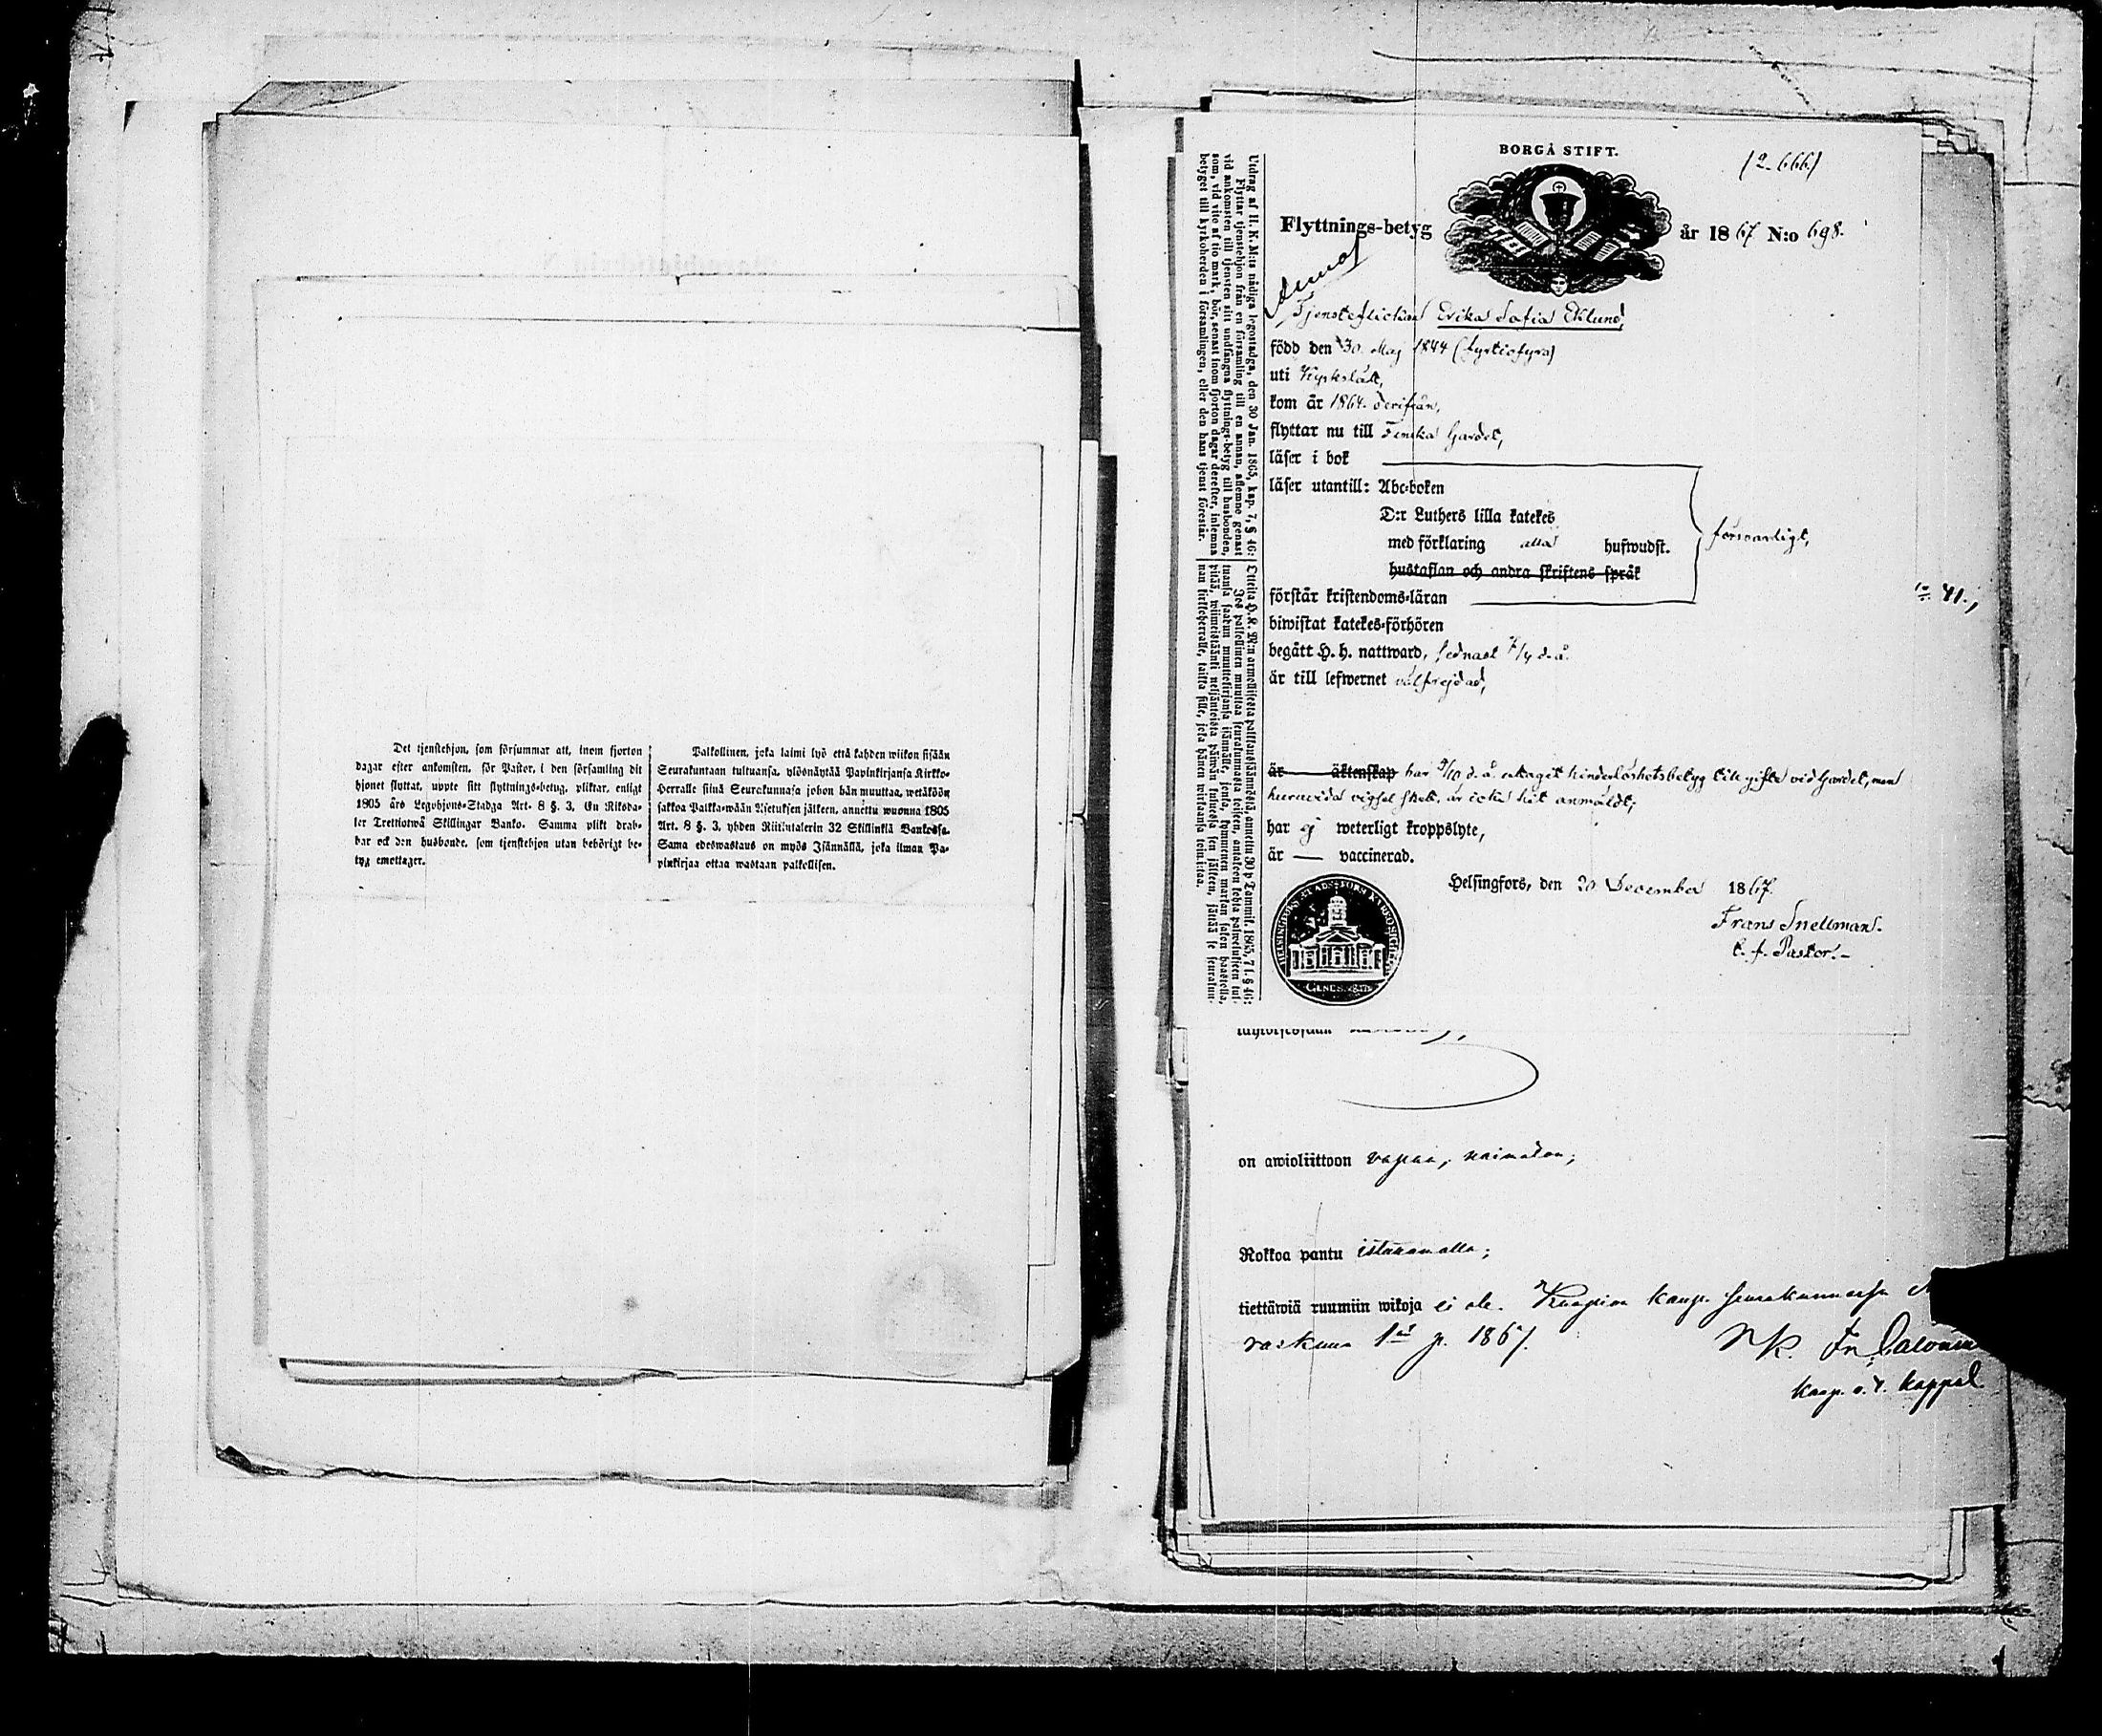 Det tjenstehjon, som försummar att, inom fjorton
dagar efter ankomsten, för Pastor, i den församling dit
hjonet flyttat, uppte sitt flyttnings-betyg, pliktar, enligt
1805 års Legohjons-Stadga Art. 8 §. 3, En Riksda-
ler Trettiotwå Skillingar Banko. Samma plikt drab-
bar ock den husbonde, som tjenstehjon utan behörigt be-
tyg emottager.
Palkollinen, joka laimi lyö että kahden wiikon sisään
Seurakuntaan tultuansa, ylösnäytää Papinkirjansa Kirkko-
Herralle siinä Seurakunnasa johon hän muuttaa, wetäköön
sakkoa Palkka-wään Asetuksen jälkeen, annettu wuonna 1805
Art. 8 §. 3, yhden Riikintalerin 32 Skillinkiä Bankossa.
Sama edeswastaus on myös Isännällä, joka ilman Pa-
pinkirjaa ottaa wastaan palkollisen.
BORGÅ STIFT.
(2-666)
Flyttnings-betyg år 1867 N:o 698.
Utdrag af H. K. M:ts nådiga legostadga, den 30 Jan. 1865, kap. 7, § 46:
Flyttar tjenstehjon från en församling till en annan, aflemne genast
vid ankomsten till tjensten sitt undfångna flyttnings-betyg till husbonden,
som, vid vite af tio mark, bör, senast inom fjorton dagar derefter, inlemna
betyget till kyrkoherden i församlingen, eller den hans tjenst förestår.
Otteita H. K. M:n armollisesta palkkaussäännöstä, annettu 30 p. Tammik. 1865, 7 l. § 46:
Jos palkollinen muuttaa seurakunnasta toiseen, antakoon kohta palwelukseen tul-
tuansa saadun muuttokirjansa isännälle, jonka, kymmenen markan sakon haastolla,
pitää, wiimeistäänki neljäntoista päiwän kuluessa sen jälkeen, jättää se seurakun-
nan kirkkoherralle, taikka sille, joka hänen wirkaansa toimittaa.
Anna
Tjensteflickan Erika Sofia Eklund,
född den 30. Maj 1844 (fyrtiofyra)
uti Kyrkslätt,
kom år 1864. derifrån,
flyttar nu till Finska Gardet,
läser i bok
läser utantill: Abc-boken
D:r Luthers lilla katekes
med förklaring alla hufwudst.
hustaflan och andra skriftens språk
försvarligt,
förstår kristendoms-läran
biwistat katekes-förhören
begått H. h. nattward, sednast /4 d. å.
är till lefwernet välfrejdad,
är äktenskap har /10 d. å. uttagit hinderlöshetsbetyg till gifte vid Gardet, men
huruvida vigsel skett, är icke hit anmäldt;
har ej weterligt kroppslyte,
är — vaccinerad.
Helsingfors, den 20 December 1867.
Frans Snellman.
t. f. Pastor.-
41.,
on awioliittoon vapaa, naimaton;
Rokkoa pantu istuttamalla;
tiettäwiä ruumiin wikoja ei ole. Kuopion kaup. seurakunnassa
raskuun 1 p. 1867.